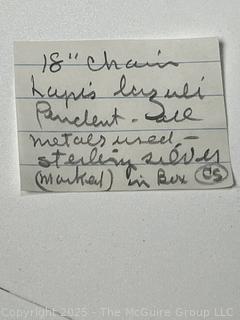 18" chain
Lapis lazuli
Pendent - All
metals used -
sterling silver
(marked) in Box CS
Copyright 2025 - The McGuire Group LLC